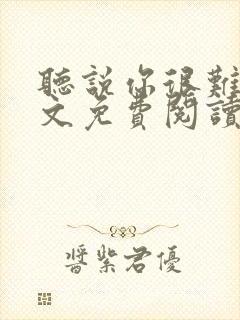 聽說你很難
文免費閱讀
醬紫君優